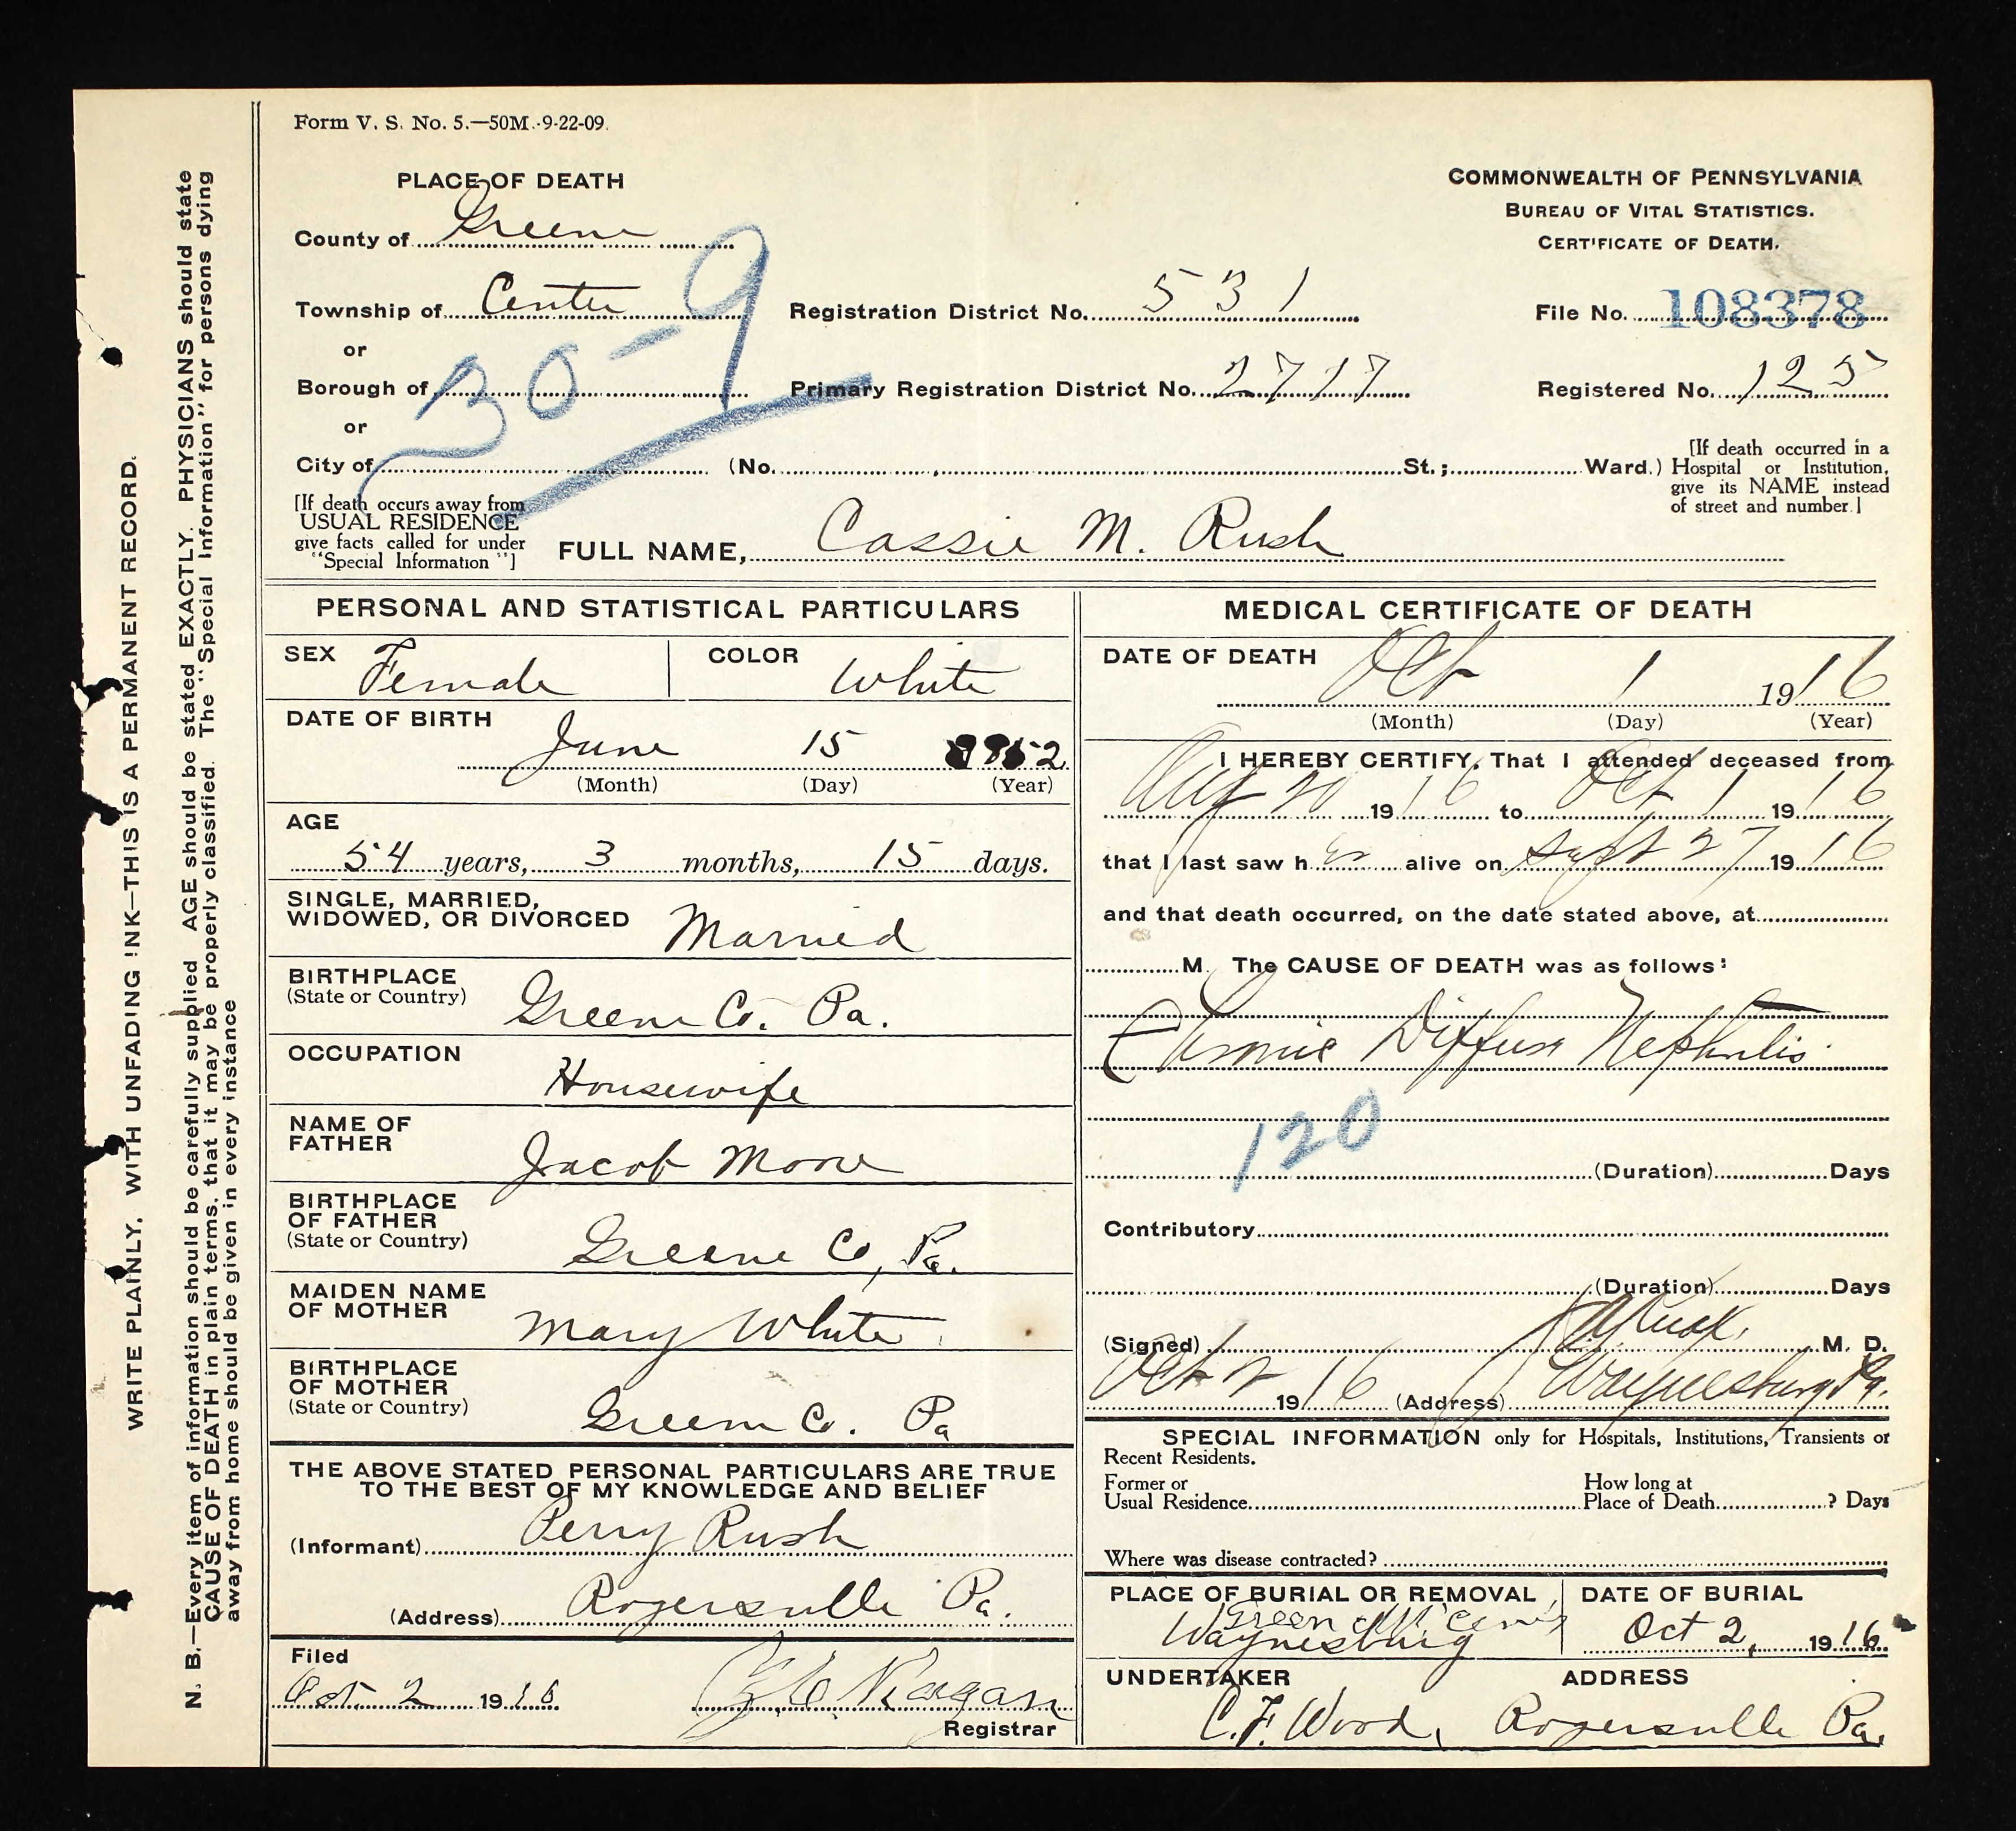 Form V. S. No. 5.—50M.-9-22-09.
PLACE OF DEATH
County of Greene
Township of Center
or
Borough of
or
City of
(No. St.; Ward.)
30-9
[If death occurs away from
USUAL RESIDENCE
give facts called for under
"Special Information"]
COMMONWEALTH OF PENNSYLVANIA
BUREAU OF VITAL STATISTICS.
CERTIFICATE OF DEATH.
Registration District No. 531
File No. 108378
Primary Registration District No. 2717
Registered No. 125
[If death occurred in a
Hospital or Institution,
give its NAME instead
of street and number.]
FULL NAME, Cassie M. Rush
PERSONAL AND STATISTICAL PARTICULARS
SEX Female COLOR White
DATE OF BIRTH June 15
(Month) (Day) (Year)
AGE
54 years, 3 months, 15 days.
SINGLE, MARRIED,
WIDOWED, OR DIVORCED Married
BIRTHPLACE
(State or Country) Greene Co. Pa.
OCCUPATION
Housewife
NAME OF
FATHER Jacob Moore
BIRTHPLACE
OF FATHER
(State or Country) Greene Co, Pa.
MAIDEN NAME
OF MOTHER Mary White
BIRTHPLACE
OF MOTHER
(State or Country) Greene Co. Pa
THE ABOVE STATED PERSONAL PARTICULARS ARE TRUE
TO THE BEST OF MY KNOWLEDGE AND BELIEF
(Informant) Perry Rush
(Address) Rogersville Pa.
Filed
Oct. 2 1916
Registrar
MEDICAL CERTIFICATE OF DEATH
DATE OF DEATH Oct 1 1916
(Month) (Day) (Year)
I HEREBY CERTIFY, That I attended deceased from
Aug 20 1916 to Oct 1 1916
that I last saw her alive on Sept 27 1916
and that death occurred, on the date stated above, at
M. The CAUSE OF DEATH was as follows:
Chronic Diffuse Nephritis
120
(Duration) Days
Contributory
(Duration) Days
(Signed) M. D.
Oct 2 1916 (Address) Waynesburg Pa.
SPECIAL INFORMATION only for Hospitals, Institutions, Transients or
Recent Residents.
Former or
Usual Residence
How long at
Place of Death ? Days
Where was disease contracted?
PLACE OF BURIAL OR REMOVAL
Green Mt Cem
Waynesburg
DATE OF BURIAL
Oct 2, 1916
UNDERTAKER ADDRESS
C. F. Wood, Rogersville Pa.
WRITE PLAINLY, WITH UNFADING INK—THIS IS A PERMANENT RECORD.
N. B.—Every item of information should be carefully supplied AGE should be stated EXACTLY. PHYSICIANS should state
CAUSE OF DEATH in plain terms, that it may be properly classified. The "Special Information" for persons dying
away from home should be given in every instance